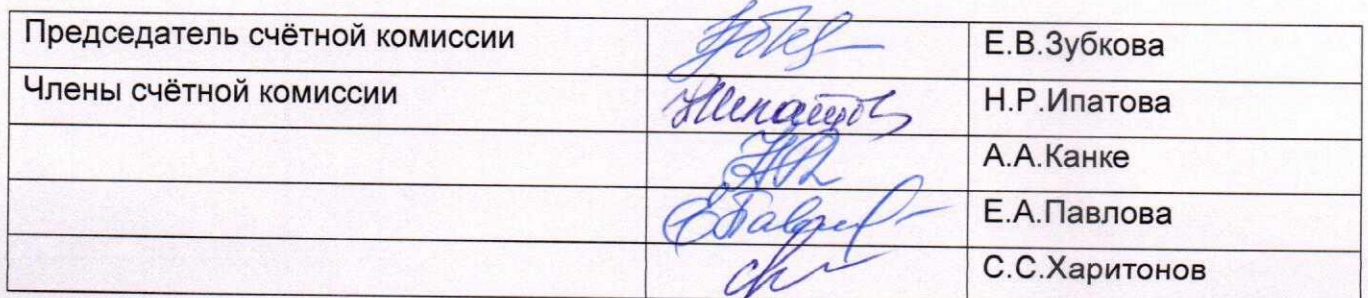 Председатель счётной комиссии Е.В.Зубкова
Члены счётной комиссии Н.Р.Ипатова
А.А.Канке
Е.А.Павлова
С.С.Харитонов